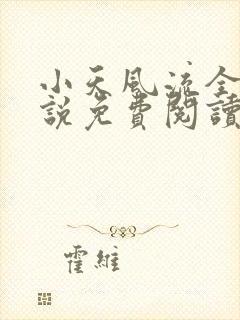 小天風流全
說免費閱讀
霍維